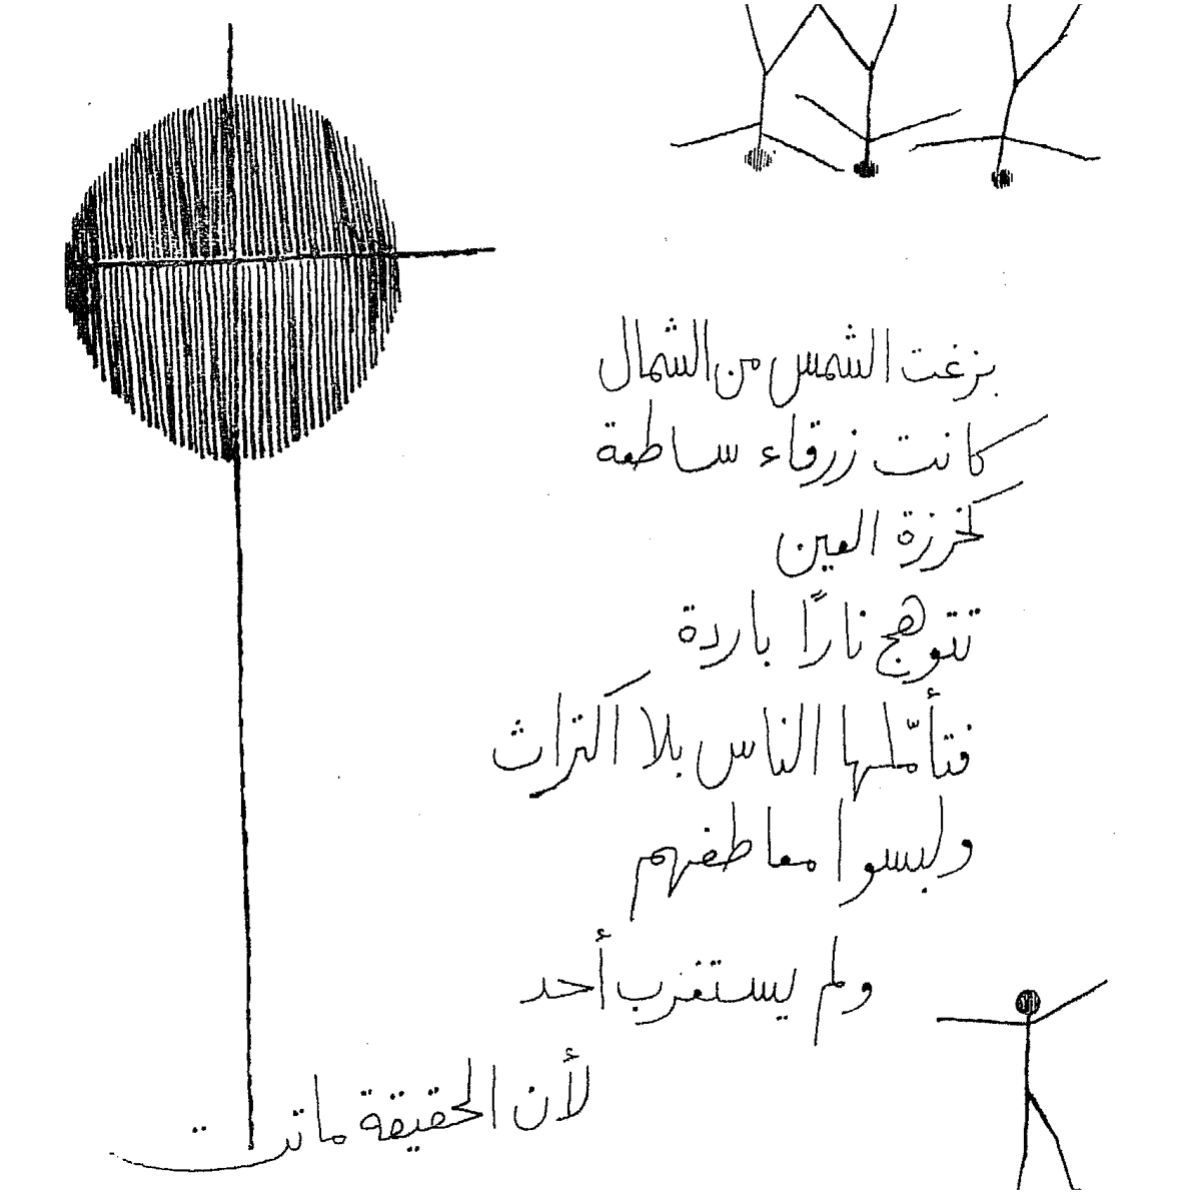 بزغت الشمس من الشمال
كانت زرقاء ساطعة
كخرزة العين
تتوهج نارًا باردة
فتأمّلها الناس بلا اكتراث
ولبسوا معاطفهم
ولم يستغرب أحد
لأن الحقيقة ماتت